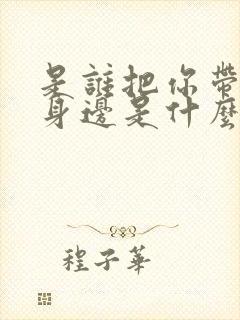 是誰把你帶
身邊是什麼
程子華